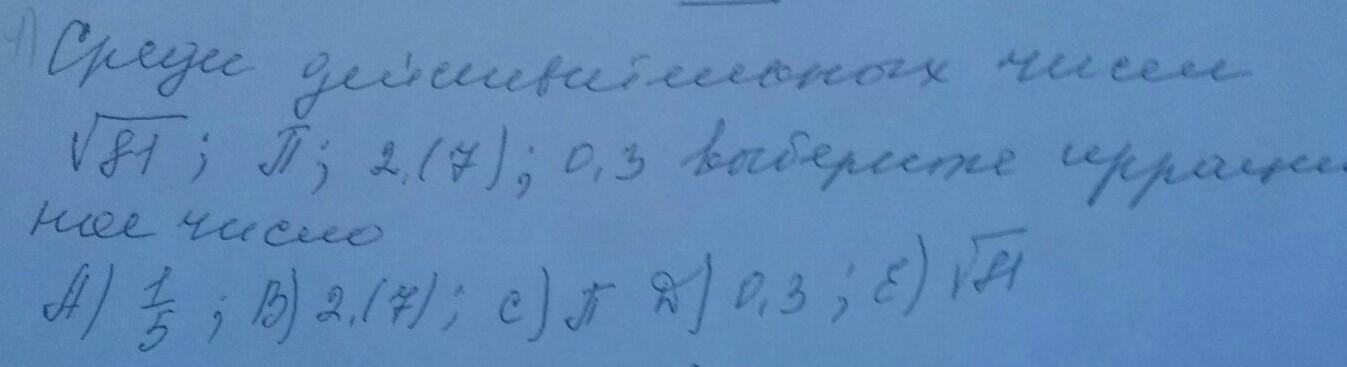 1) Среди действительных чисел
√81; π; 2,(7); 0,3 выберите иррацио
ное число
А) 1/5; В) 2,(7); С) π Д) 0,3; Е) √81